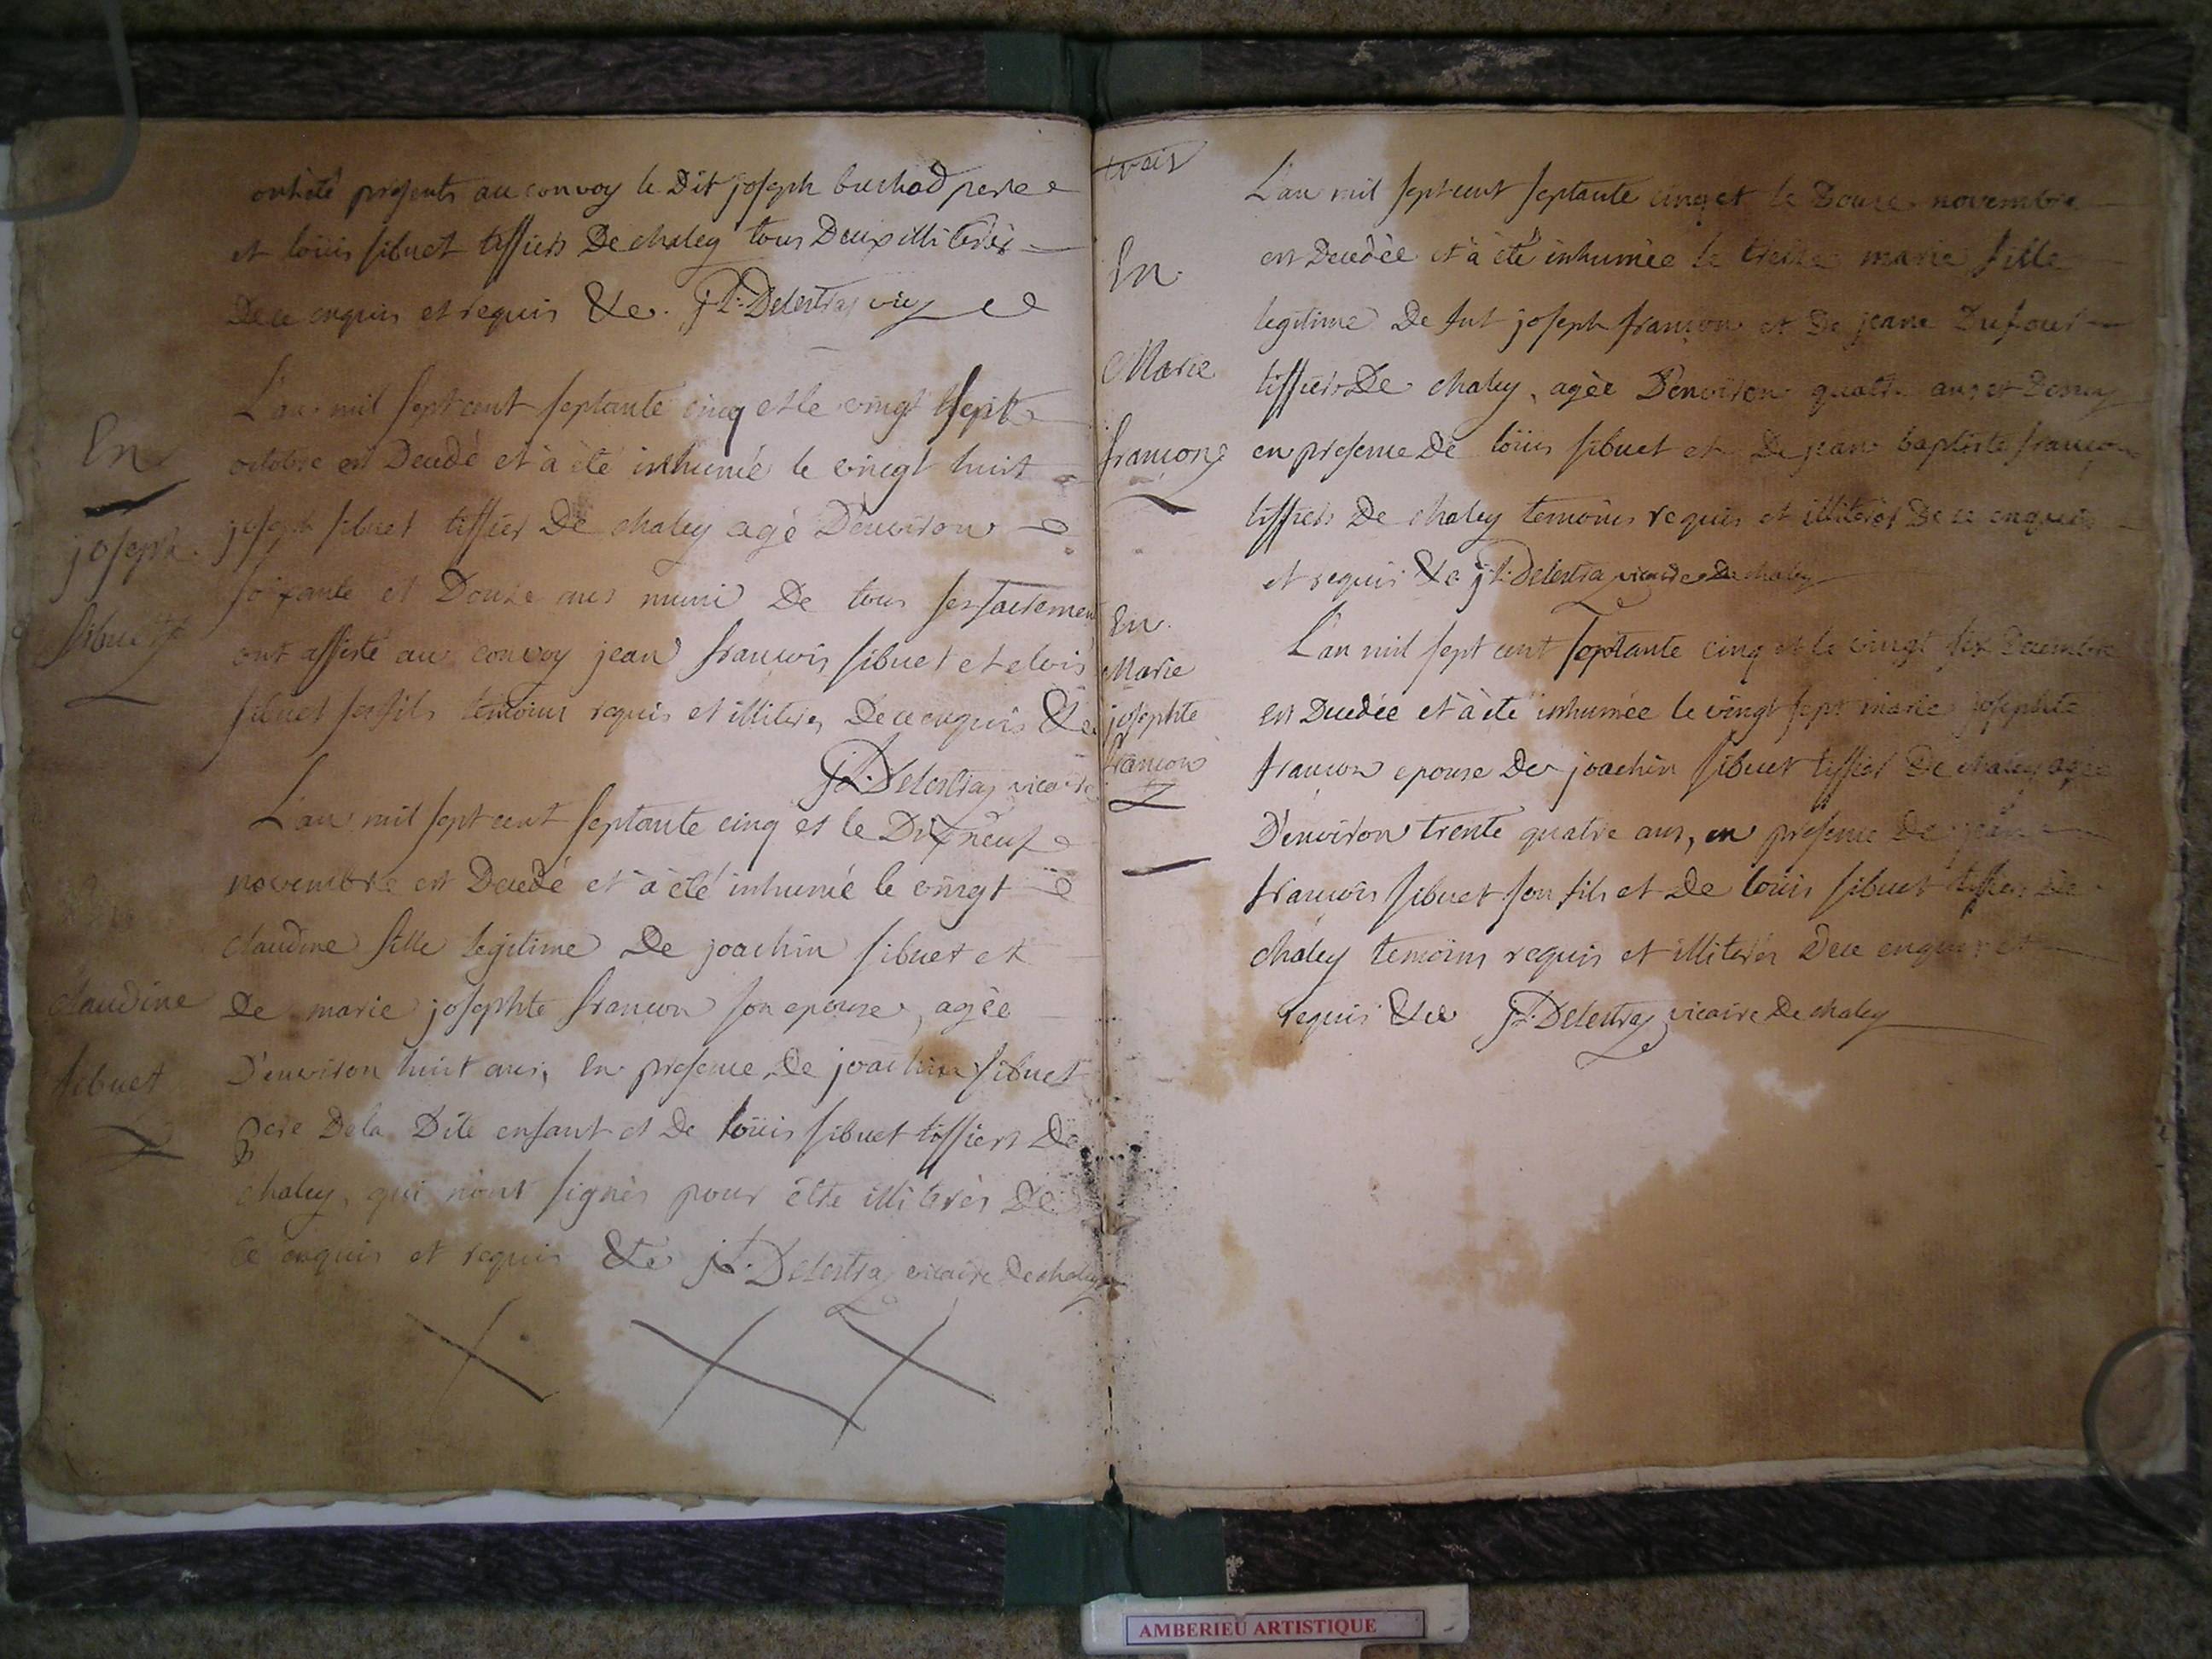 ont été presents au convoy le Dit joseph buchod pere
et loüis sibuet tissiers De chaley tous Deux illiterés
De ce enquis et requis &c. jh: Delestra vic
En
joseph
sibuet
L'an mil sept cent septante cinq et le vingt sept
octobre est Decedé et à été inhumé le vingt huit
joseph sibuet tissier De chaley agé D'environ
soixante et Douze ans muni De tous ses sacremen
ont assisté au convoy jean francois sibuet et
sibuet ses fils temoins requis et illiterés De ce enquis &c
Delestra vicaire
claudine
sibuet
L'an mil sept cent septante cinq et le Dix neuf
novembre est Decedé et à été inhumé le vingt
claudine fille legitime De joachin sibuet et
De marie josephte francon son epouse, agée
D'environ huit ans, en presence De joachin sibuet
pere De la Dite enfant et De loüis sibuet tissiers De
chaley, qui n'ont signés pour être illiterés De
ce enquis et requis &c Delestra vicaire De chaley
En
Marie
françon
L'an mil sept cent septante cinq et le Douze novembre
est Decedée et à été inhumée le treize marie fille
legitime De fut joseph françon et De jeane Dufour
tissiers De chaley, agée D'environ quatre ans et Demy
en presence De loüis sibuet et De jean baptiste françon
tissiers De chaley temoins requis et illiterés De ce enquis
et requis &c Delestra vicaire De chaley
En
Marie
josephte
françon
L'an mil sept cent septante cinq et le vingt six Decembre
est Decedée et à été inhumée le vingt sept marie josephte
francon epouse De joachin sibuet tissier De chaley agée
D'environ trente quatre ans, en presence De jean
françois sibuet son fils et De loüis sibuet tissiers De
chaley temoins requis et illiterés De ce enquis et
requis &c Delestra vicaire De chaley
AMBERIEU ARTISTIQUE